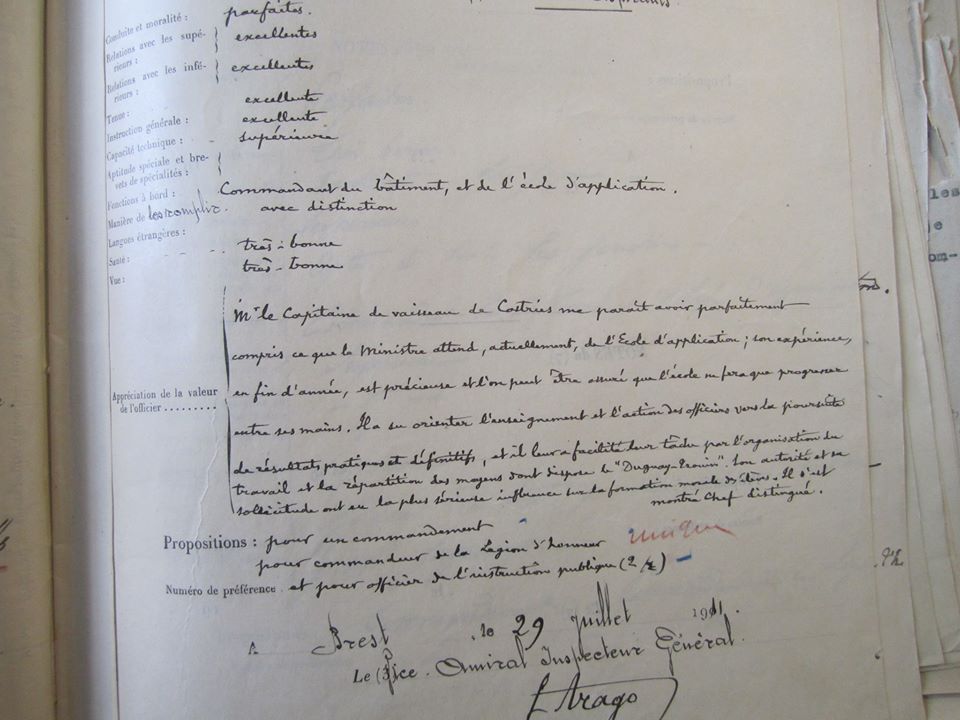 Conduite et moralité : parfaites.
Relations avec les supé-
rieurs : } excellentes
Relations avec les infé-
rieurs : } excellentes
Tenue : excellente
Instruction générale : excellente
Capacité technique : supérieure
Aptitude spéciale et bre-
vets de spécialités : }
Fonctions à bord : Commandant du bâtiment, et de l'école d'application.
Manière de les remplir. avec distinction
Langues étrangères :
Santé : très-bonne
Vue : très-bonne
Mr le Capitaine de vaisseau de Castries me paraît avoir parfaitement
compris ce que le Ministre attend, actuellement, de l'Ecole d'application ; son expérience,
en fin d'année, est précieuse et l'on peut être assuré que l'école ne fera que progresser
Appréciation de la valeur
de l'officier .........
entre ses mains. Il a su orienter l'enseignement et l'action des officiers vers la poursuite
de résultats pratiques et définitifs, et il leur a facilité leur tâche par l'organisation du
travail et la répartition des moyens dont dispose le "Duguay-Trouin". Son autorité et sa
sollicitude ont eu la plus sérieuse influence sur la formation morale des élèves. Il s'est
montré Chef distingué.
Propositions : pour un commandement
pour commandeur de la Légion d'honneur unique
Numéro de préférence et pour officier de l'instruction publique (2/2)
A Brest, le 29 Juillet 1911.
Le Vice-Amiral Inspecteur Général.
Arago
les
je
om-